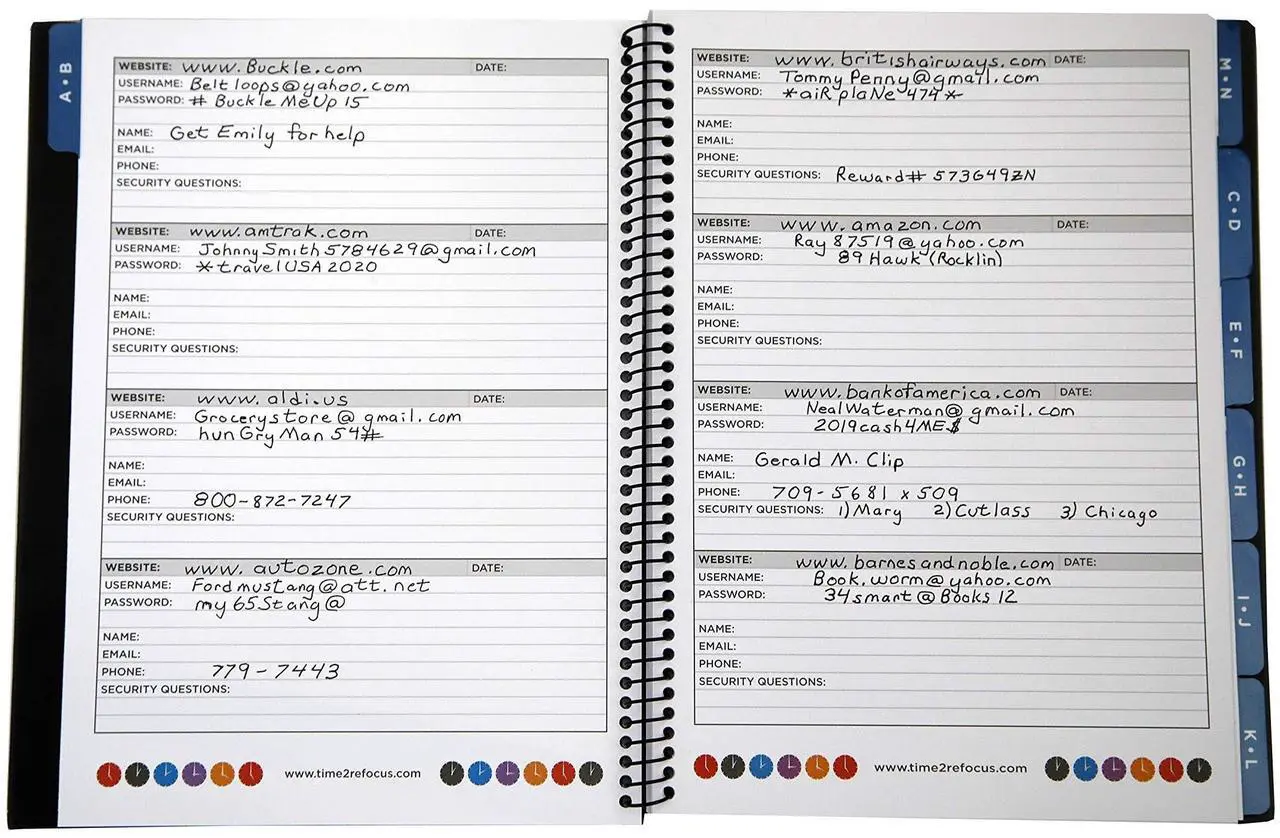 A • B
WEBSITE: www.Buckle.com DATE:
USERNAME: Beltloops@yahoo.com
PASSWORD: # BuckleMeUp 15
NAME: Get Emily for help
EMAIL:
PHONE:
SECURITY QUESTIONS:
WEBSITE: www.amtrak.com DATE:
USERNAME: JohnnySmith5784629@gmail.com
PASSWORD: *travelUSA2020
NAME:
EMAIL:
PHONE:
SECURITY QUESTIONS:
WEBSITE: www.aldi.us DATE:
USERNAME: Grocerystore@gmail.com
PASSWORD: hunGryMan54#
NAME:
EMAIL:
PHONE: 800-872-7247
SECURITY QUESTIONS:
WEBSITE: www.autozone.com DATE:
USERNAME: Fordmustang@att.net
PASSWORD: my65Stang@
NAME:
EMAIL:
PHONE: 779-7443
SECURITY QUESTIONS:
www.time2refocus.com
WEBSITE: www.britishairways.com DATE:
USERNAME: TommyPenny@gmail.com
PASSWORD: *aiRplaNe474*
NAME:
EMAIL:
PHONE:
SECURITY QUESTIONS: Reward# 573649ZN
WEBSITE: www.amazon.com DATE:
USERNAME: Ray87519@yahoo.com
PASSWORD: 89 Hawk (Rocklin)
NAME:
EMAIL:
PHONE:
SECURITY QUESTIONS:
WEBSITE: www.bankofamerica.com DATE:
USERNAME: NealWaterman@gmail.com
PASSWORD: 2019cash4ME$
NAME: Gerald M. Clip
EMAIL:
PHONE: 709-5681 x 509
SECURITY QUESTIONS: 1) Mary 2) Cutlass 3) Chicago
WEBSITE: www.barnesandnoble.com DATE:
USERNAME: Book.worm@yahoo.com
PASSWORD: 34smart@Books12
NAME:
EMAIL:
PHONE:
SECURITY QUESTIONS:
www.time2refocus.com
M • N
C • D
E • F
G • H
I • J
K • L